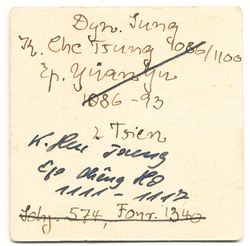 Dyn. Sung
K. Che Tsung 1086/1100
Ep. Yüan Yu
1086 - 93
2 Tsien
K. Hui Tsung
Ep Chêng Ho
1111 - 1117
Schj. 574, Four. 1340